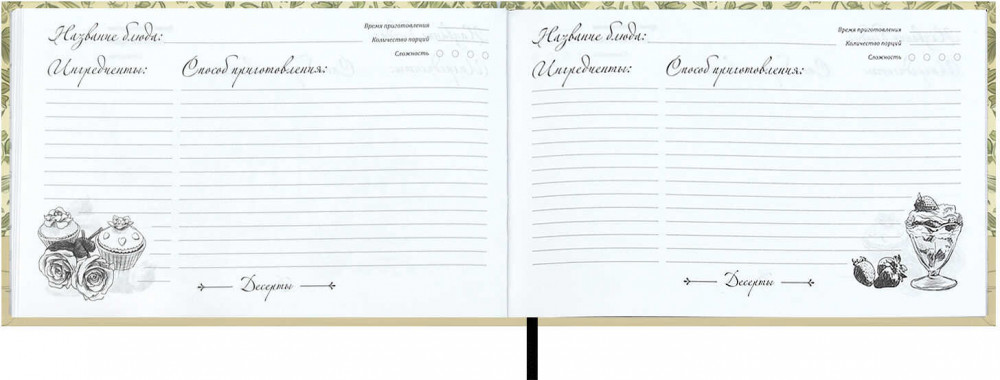 Название блюда:
Время приготовления
Количество порций
Сложность
Ингредиенты:
Способ приготовления:
Десерты
Название блюда:
Время приготовления
Количество порций
Сложность
Ингредиенты:
Способ приготовления:
Десерты